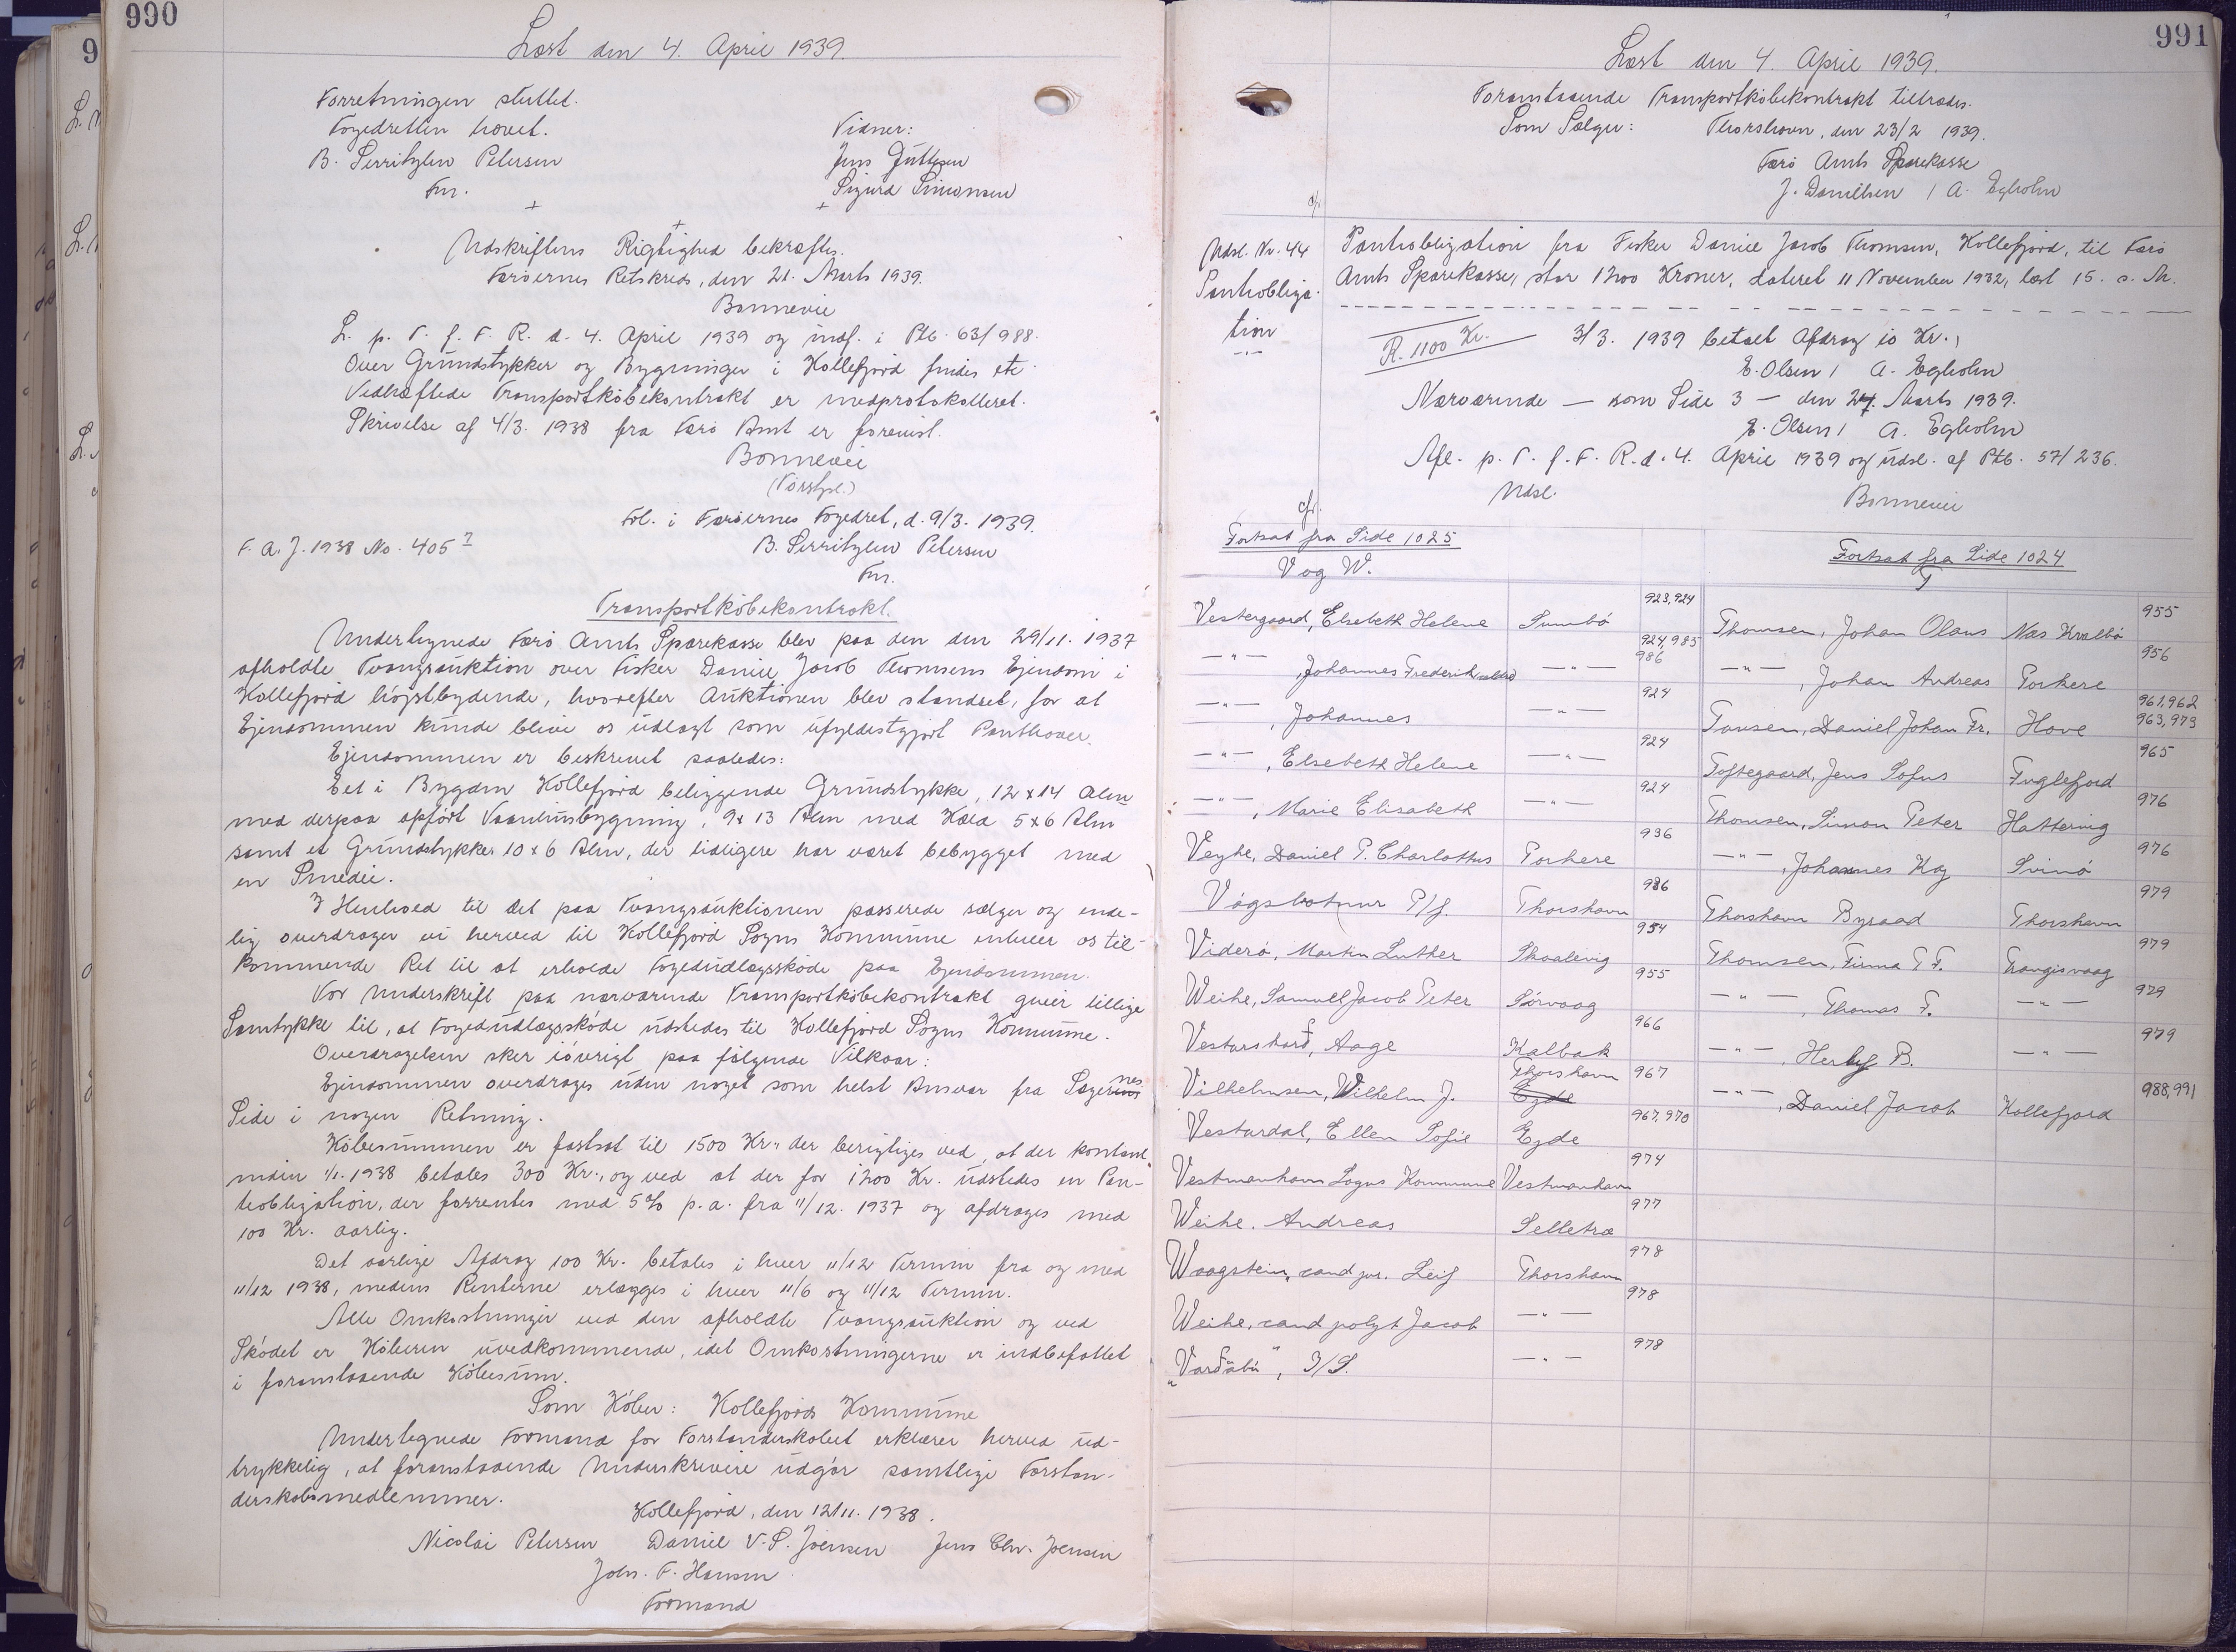 990
Læst den 4. April 1939.
Forretningen sluttet.
Fogedretten hævet.
Vidner:
B. Serritzlew Petersen
Jens Guttesen
Fm.
Sigurd Simonsen
Udskriftens Rigtighed bekræftes.
Færøernes Retskreds, den 21. Marts 1939.
Bonnevie
L. p. T. f. F. R. d. 4. April 1939 og indf. i Ptb. 63/988.
Over Grundstykker og Bygninger i Kollefjord findes etc.
Vedhæftede Transportkøbekontrakt er medprotokolleret.
Skrivelse af 4/3. 1938 fra Færø Amt er forevist.
Bonnevie
Frl. i Færøernes Fogedret, d. 9/3. 1939.
F. A. J. 1938 No. 405
B. Serritzlew Petersen
Fm.
Transportkøbekontrakt.
Undertegnede Færø Amts Sparekasse blev paa den den 29/11. 1937
afholdte Tvangsauktion over Fisker Daniel Jacob Thomsens Ejendom i
Kollefjord højstbydende, hvorefter Auktionen blev standset, for at
Ejendommen kunde blive os udlagt som ufyldestgjort Panthaver.
Ejendommen er beskrevet saaledes:
Eet i Bygden Kollefjord beliggende Grundstykke, 12 x 14 Alen
med derpaa opført Vaaningsbygning, 9 x 13 Alen med Kæld 5 x 6 Alm
samt et Grundstykker 10 x 6 Alm, der tidligere har været bebygget med
en Smedie.
I Henhold til det paa Tvangsauktionen passerede sælger og ende-
lig overdrager vi herved til Kollefjord Sogns Kommune enhver os til-
kommende Ret til at erholde Fogedudlægsskøde paa Ejendommen.
Vor Underskrift paa nærværende Transportkøbekontrakt giver tillige
Samtykke til, at Fogedudlægsskøde udstedes til Kollefjord Sogns Kommune.
Overdragelsen sker iøvrigt paa følgende Vilkaar:
Ejendommen overdrages uden noget som helst Ansvar fra Sægernes
Side i nogen Retning.
Købesummen er fastsat til 1500 Kr., der berigtiges ved, at der kontant
inden 1/1. 1938 betales 300 Kr., og ved at der for 1200 Kr. udstedes en Pan-
teobligation, der forrentes med 5% p.a. fra 11/12. 1937 og afdrages med
100 Kr. aarlig.
Det aarlige Afdrag 100 Kr. betales i hver 11/12 Termin fra og med
11/12 1938, medens Renterne erlægges i hver 11/6 og 11/12 Termin.
Alle Omkostninger ved den afholdte Tvangsauktion og ved
Skødet er Køberen uvedkommende, idet Omkostningerne er indbefattet
i foranstaaende Købesum.
Som Køber: Kollefjords Kommune
Undertegnede Formand for Forstanderskabet erklærer herved ud-
trykkelig, at foranstaaende Underskrivere udgør samtlige Forstan-
derskabsmedlemmer.
Kollefjord, den 12/11. 1938.
Nicolai Petersen Daniel V. S. Joensen Jens Chr. Joensen
Johs. F. Hansen
Formand
991
Læst den 4. April 1939.
Foranstaaende Transportkøbekontrakt tiltrædes.
Som Sælger: Thorshavn, den 23/2 1939.
Færø Amts Sparekasse
J. Danielsen / A. Egholm
Udsl. Nr. 44
Pantobliga-
tion
Pantobligation fra Fisker Daniel Jacob Thomsen, Kollefjord, til Færø
Amts Sparekasse, stor 1200 Kroner, dateret 11 November 1932, læst 15. s. M.
R. 1100 Kr.
3/3. 1939 betalt Afdrag 10 Kr.,
E. Olsen / A. Egholm
Nærværende — som Side 3 — den 24. Marts 1939.
E. Olsen / A. Egholm
Afl. p. T. f. F. R. d. 4. April 1939 og udsl. af Ptb. 57/236.
Udsl.
Bonnevie
cfr.
Fortsat fra Side 1025
V og W.
Vestergaard, Elsebeth Helene Sumbø 923, 924
—"—, Johannes Frederik —"— 924, 985 986
—"—, Johannes —"— 924
—"—, Elsebeth Helene —"— 924
—"—, Marie Elisabeth —"— 924
Veyhe, Daniel P. Charlottus Porkere 936
Vágsbotnur P/f. Thorshavn 986
Viderø, Martin Luther Skaalevig 954
Weihe, Samuel Jacob Peter Sørvaag 955
Vestarskarð, Aage Kalbak 966
Vilhelmsen, Wilhelm J. Thorshavn Ejde 967
Vestardal, Ellen Sofie Ejde 967, 970
Vestmanhavn Sogns Kommune Vestmanhavn 974
Weihe, Andreas Selletræ 977
Waagstein, cand jur. Leif Thorshavn 978
Weihe, cand polyt Jacob —"— 978
"Varðabú", I/S. —"— 978
Fortsat fra Side 1024
Thomsen, Johan Olaus Næs Kvalbø 955
—"—, Johan Andreas Porkere 956
Tausen, Daniel Johan Fr. Hove 961, 962 963, 973
Toftegaard, Jens Sofus Fuglefjord 965
Thomsen, Simon Peter Hattervig 976
—"—, Johannes Kaj Svinø 976
Thorshavn Byraad Thorshavn 979
Thomsen, Firma T F. Trangisvaag 979
—"—, Thomas F. —"— 979
—"—, Herluf B. —"— 979
—"—, Daniel Jacob Kollefjord 988, 991